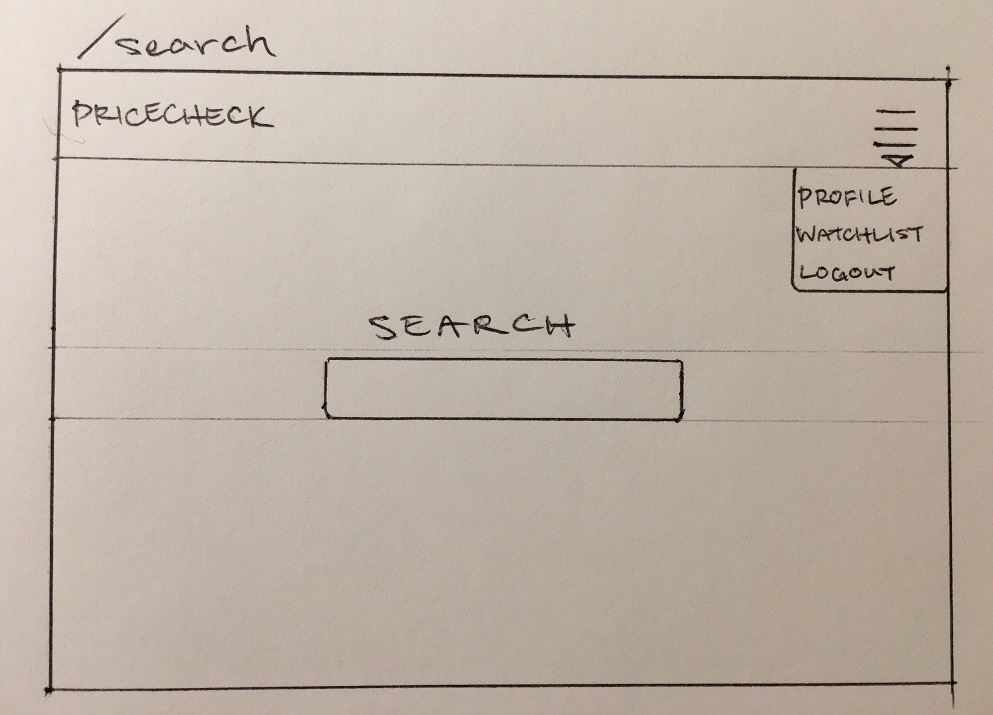 /search
PRICECHECK
PROFILE
WATCHLIST
LOGOUT
SEARCH